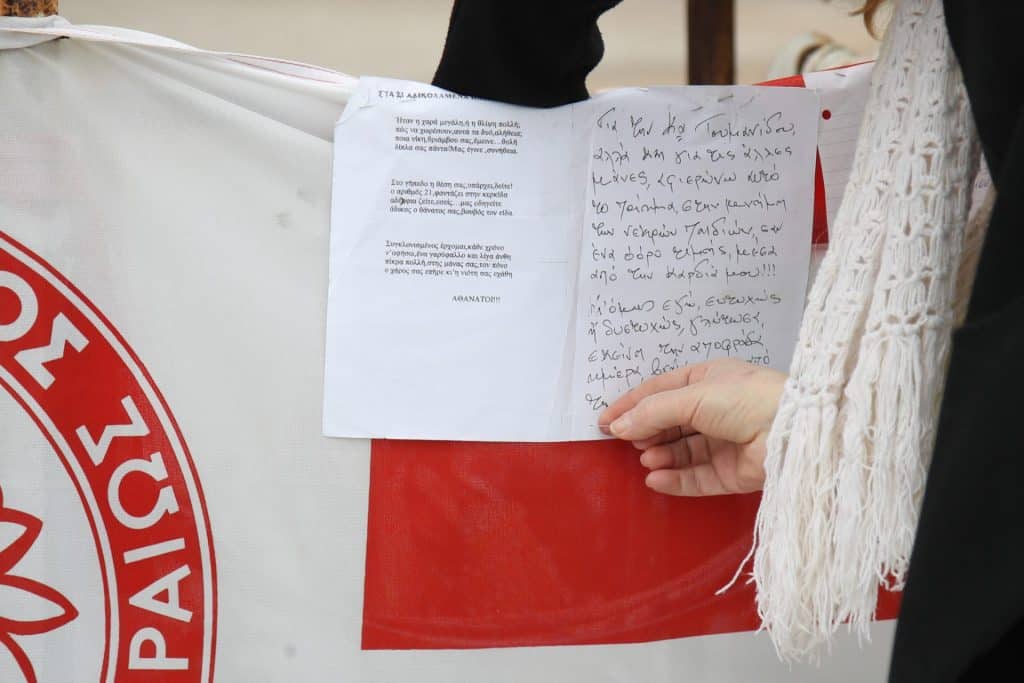 ΣΤΑ 21 ΑΔΙΚΟΧΑΜΕΝΑ
Ήταν η χαρά μεγάλη,ή η θλίψη πολλή;
πώς να χωρέσουν,αυτά τα δυό,αλήθεια;
ποια νίκη,θριάμβου σας,έμεινε…θολή
δίπλα σας πάντα!Μας έγινε ,συνήθεια.
Στο γήπεδο η θέση σας,υπάρχει,δείτε!
ο αριθμός 21,φαντάζει στην κερκίδα
αδέρφια ζείτε,εσείς…μας οδηγείτε
άδικος ο θάνατος σας,βουβός τον είδα.
Συγκλονισμένος έρχομαι,κάθε χρόνο
ν'αφήσω,ένα γαρύφαλλο και λίγα άνθη
πίκρα πολλή,στης μάνας σας,τον πόνο
ο χάρος σας επήρε κι'η νιότη σας εχάθη
ΑΘΑΝΑΤΟΙ!!!
Για την Κα Τουμανίδου,
αλλά και για τις άλλες
μάνες, αφιερώνω αυτό
το ποίημα, στην μνήμη
των νεκρών παιδιών, σαν
ένα φόρο τιμής, μέσα
από την καρδιά μου!!!
Κι'όμως εγώ, ευτυχώς
ή δυστυχώς, γλύτωσα,
εκείνη την αποφράδα
ημέρα από
ΟΣ
ΡΑΙΩΣ